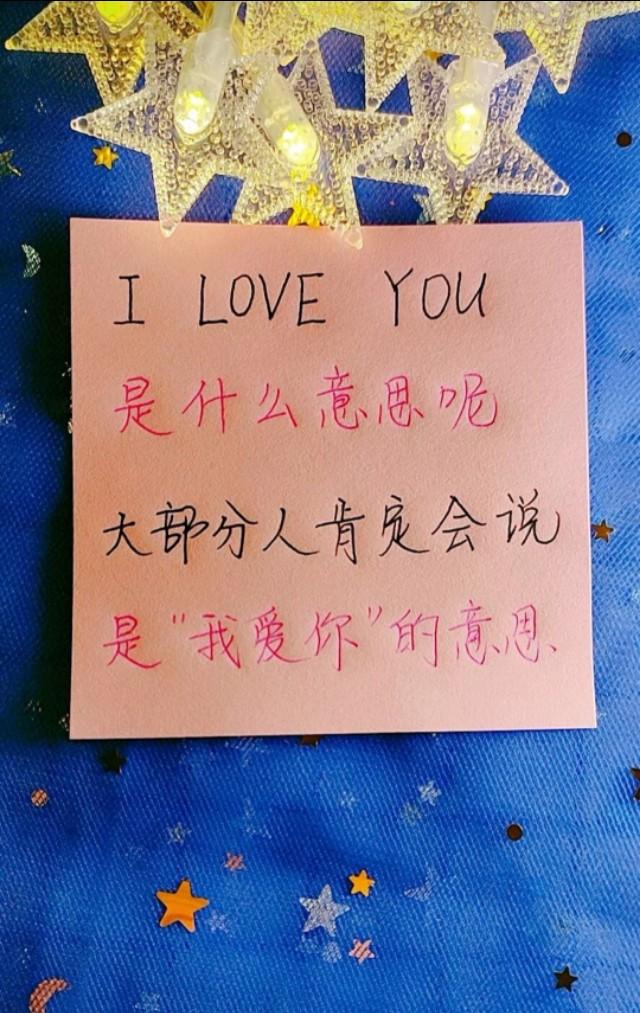 I LOVE YOU
是什么意思呢
大部分人肯定会说
是"我爱你"的意思、